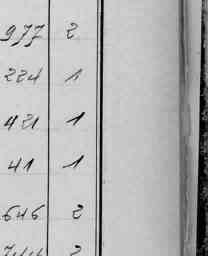 977 2
224 1
421 1
41 1
646 2